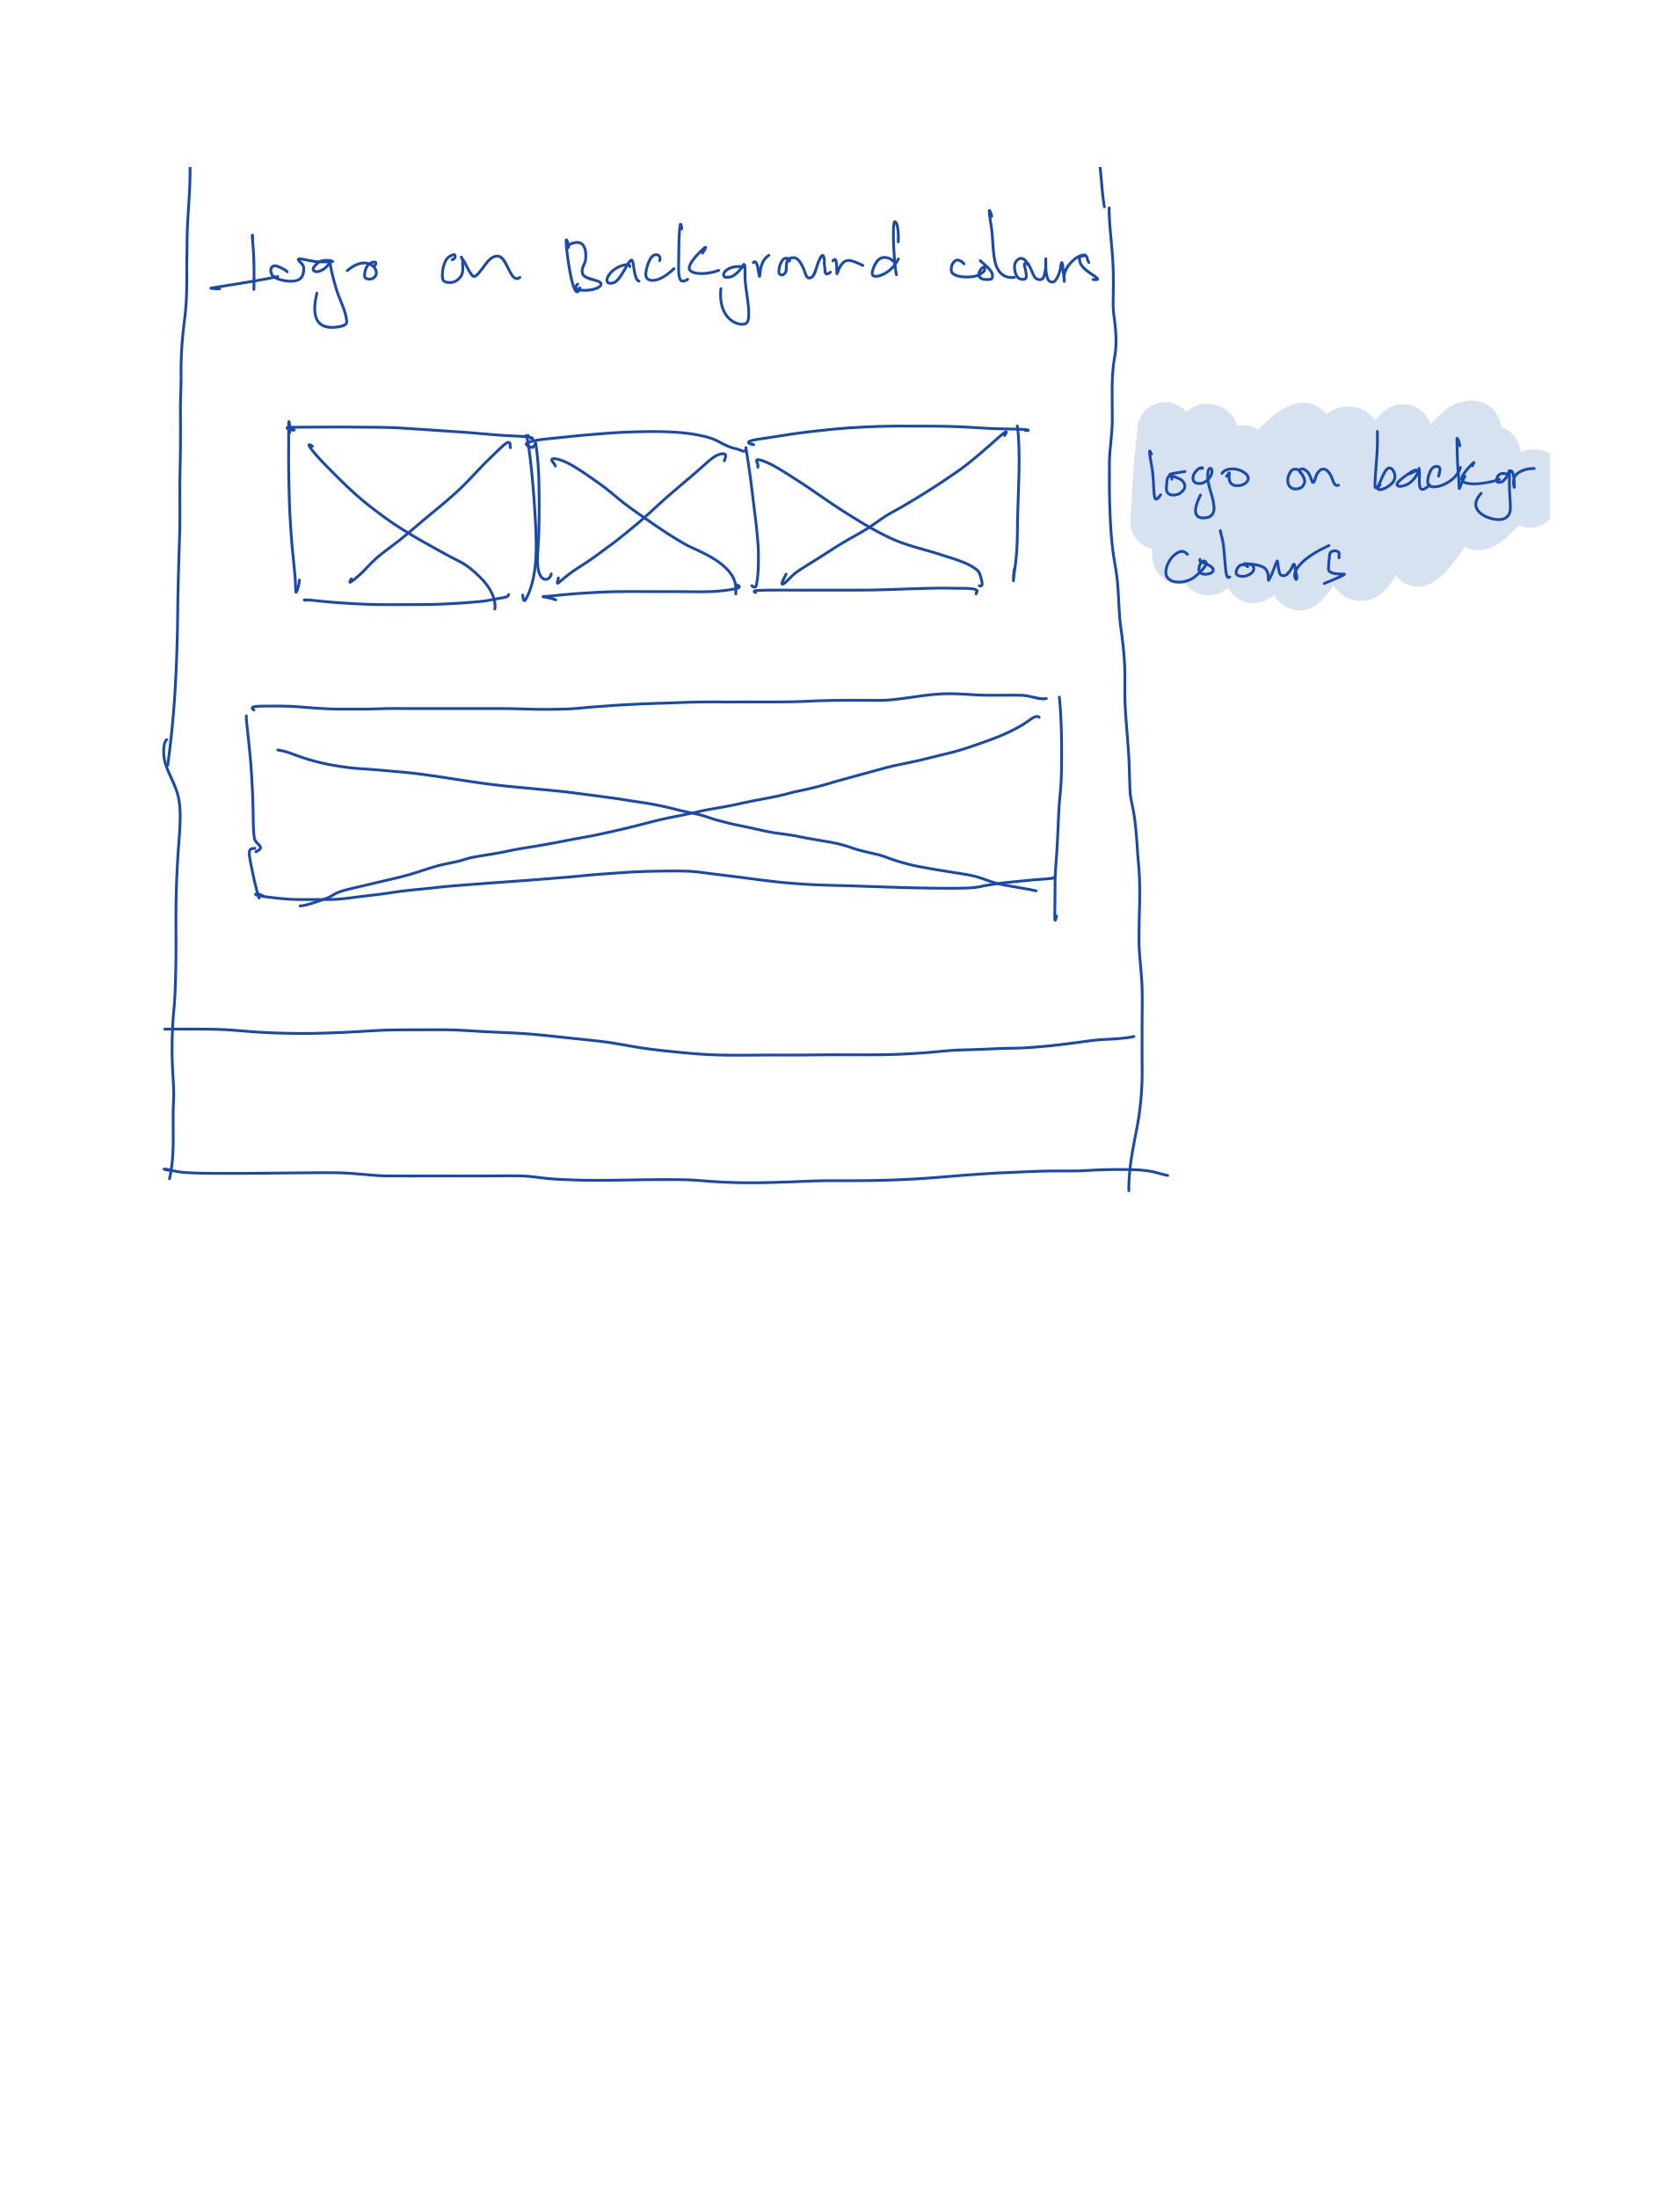 Logo on Background colours
Logo on backgr
colours